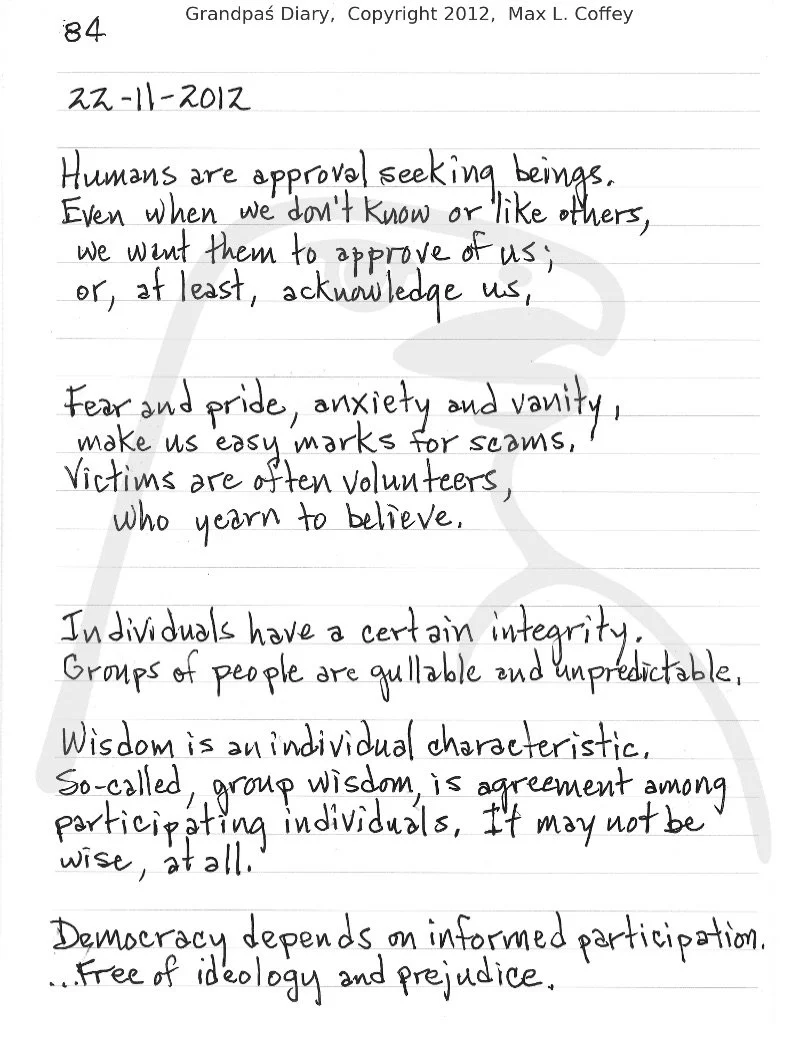 Grandpaś Diary, Copyright 2012, Max L. Coffey
84
22-11-2012
Humans are approval seeking beings.
Even when we don't know or like others,
we want them to approve of us;
or, at least, acknowledge us,
Fear and pride, anxiety and vanity,
make us easy marks for scams.
Victims are often volunteers,
who yearn to believe.
Individuals have a certain integrity.
Groups of people are gullable and unpredictable,
Wisdom is an individual characteristic.
So-called, group wisdom, is agreement among
participating individuals. It may not be
wise, at all.
Democracy depends on informed participation.
...Free of ideology and prejudice.